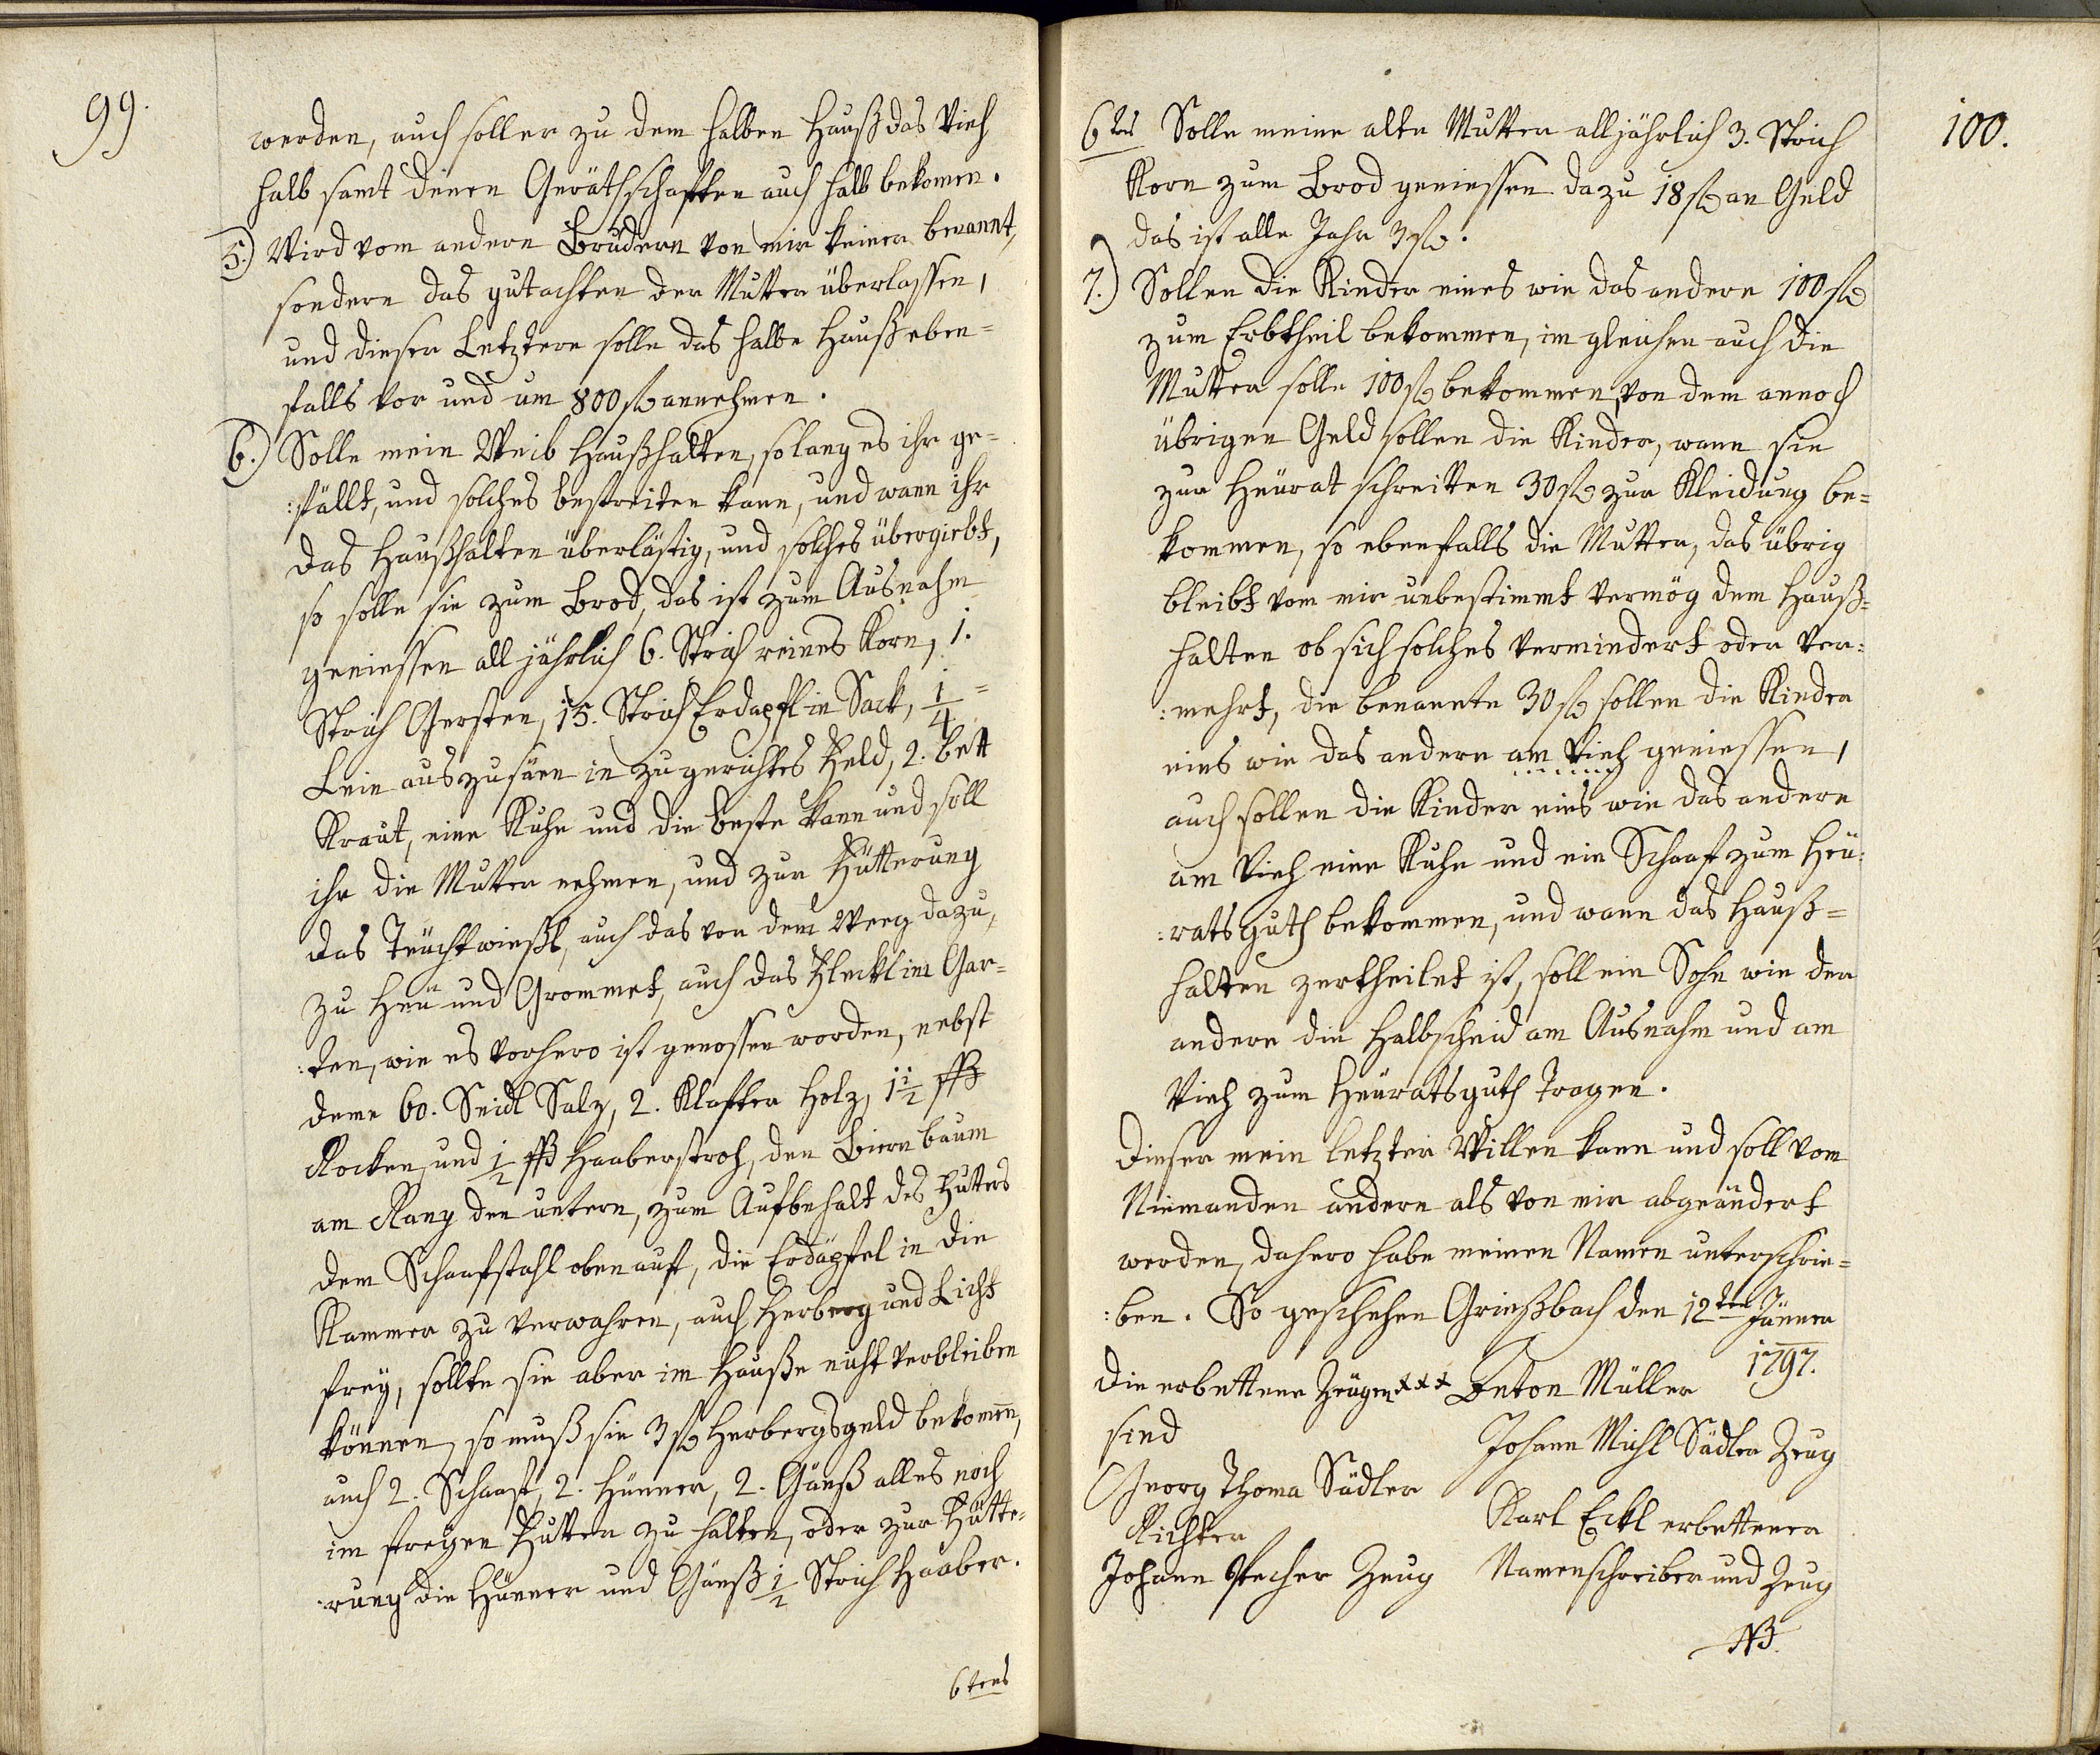 99.
werden, auch soll er zu dem halben Hauß das Vieh
halb samt denen Geräthschaften auch halb bekomen.
5.) Wird vom andern Brüdern von mir keiner benannt,
sondern das gutachten der Mutter überlassen,
und dieser Letztere solle das halbe Hauß eben=
falls vor und um 800 fl annehmen.
6.) Solle mein Weib Haußhalten, so lang es ihr ge=
:fällt, und solches bestreiten kann, und wann ihr
das Haußhalten überlästig, und solches übergiebt,
so solle sie zum Brod, das ist zum Ausnahm
geniessen all jährlich 6. Strich reines Korn, 1.
Strich Gersten, 15. Strich Erdapfl in Sack, 1/4 =
Lein auszusäen in zugerichtes Feld, 2. bett
Kraut, eine Kuhe und die beste kann und soll
ihr die Mutter nehmen, und zur Fütterung
das Teüchtwießl, auch das von dem Weeg dazu,
zu Heü und Grommet, auch das Fleckl im Gar=
:ten, wie es vorhero ist genossen worden, nebst
deme 60. Seidl Salz, 2. Klafter Holz, 1 1/2 ßß
Rocken, und 1/2 ßß Haaberstroh, den Biern baum
am Rang den untern, zum Aufbehalt des Futers
dem Schaafstahl oben auf, die Erdäpfel in die
Kammer zu verwahren, auch Herberg und Licht
freÿ, sollte sie aber im Hauße nicht verbleiben
können, so muß sie 3 fl Herbergsgeld bekomen,
auch 2. Schaaf, 2. Hünner, 2. Gänß alles noch
im freÿen Futter zu halten, oder zur Fütte=
:rung die Hünner und Gänß 1/2 Strich Haaber.
6tens
100.
6tes Solle meine alte Mutter all jährlich 3. Strich
Korn zum Brod geniessen dazu 18 fl an Geld
das ist alle Jahr 3 fl.
7.) Sollen die Kinder eines wie das andere 100 fl
zum Erbtheil bekommen, im gleichen auch die
Mutter solle 100 fl bekommen, von dem annoch
übrigen Geld sollen die Kinder, wann sie
zur Heürat schreitten 30 fl zur Kleidung be=
kommen, so ebenfalls die Mutter, das übrig
bleibt vom mir unbestimmt vermög dem Hauß=
halten ob sich solches vermindert oder ver=
:mehrt, die benannte 30 fl sollen die Kinder
eins wie das andere am Vieh geniessen,
auch sollen die Kinder eins wie das andere
am Vieh eine Kuhe und ein Schaaf zum Heü=
:rats guth bekommen, und wann das Hauß=
halten zertheilet ist, soll ein Sohn wie der
andere die Halbscheid am Ausnahm und am
Vieh zum Heüratsguth Tragen.
Dieser mein letzter Willen kann und soll vom
Niemanden andern als von mir abgeändert
werden, dahero habe meinen Namen unterschrie=
:ben. So geschehen Grießbach den 12ten Jänner
1797.
die erbettene Zeügen xxx Anton Müller
sind
Johann Michl Sädler Zeug
Georg Thoma Sädler
Richter
Karl Eckl erbettener
Johann Stecher Zeug
Namenschreiber und Zeug
NB.